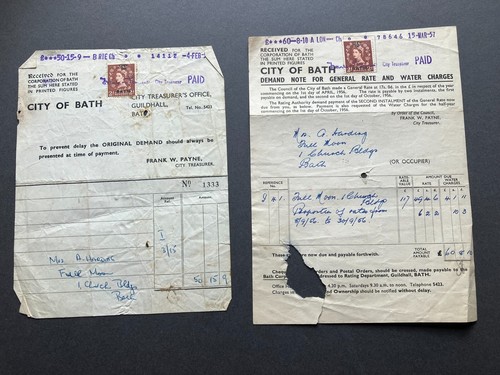 50-15-9
14112 -4 FEB
Received FOR THE
CORPORATION OF BATH
THE SUM HERE STATED
IN PRINTED FIGURES
City Treasurer
PAID
CITY OF BATH
CITY TREASURER'S OFFICE,
GUILDHALL,
BATH
Tel. No. 5423
To prevent delay the ORIGINAL DEMAND should always be
presented at time of payment.
FRANK W. PAYNE,
CITY TREASURER.
No 1333
I
Mrs A.
Full Moon
1 Church Bldgs
Bath
50 15 9
78646 15-MAR-57
RECEIVED FOR THE
CORPORATION OF BATH
THE SUM HERE STATED
IN PRINTED FIGURES
City Treasurer
PAID
CITY OF BATH
DEMAND NOTE FOR GENERAL RATE AND WATER CHARGES
The Council of the City of Bath made a General Rate at 17s. 0d. in the £ in respect of the year
commencing on the 1st day of APRIL, 1956. The rate is payable by two instalments, the first
payable on demand, and the second on the 1st day of October, 1956.
The Rating Authority demand payment of the SECOND INSTALMENT of the General Rate now
due from you, as below. Payment is also requested of the Water Charges for the half-year
commencing on the 1st day of October, 1956.
By Order of the Council,
FRANK W. PAYNE,
City Treasurer.
Mrs. A. Harding
Full Moon
1 Church Bldgs
Bath
(OR OCCUPIER)
REFERENCE No.
RATEABLE VALUE
AMOUNT DUE
RATE
WATER CHARGES
I 41 Full Moon 1 Church Bldgs 117 49 14 6 4 1 11
Proportion of rates from
5/9/56 to 30/9/56 6 2 2 10 3
These are now due and payable forthwith.
TOTAL AMOUNT PAYABLE
Orders and Postal Orders, should be crossed, made payable to the
Bath and addressed to Rating Department, Guildhall, BATH.
4.30 p.m. Saturdays 9.30 a.m. to noon. Telephone 5423.
and Ownership should be notified without delay.